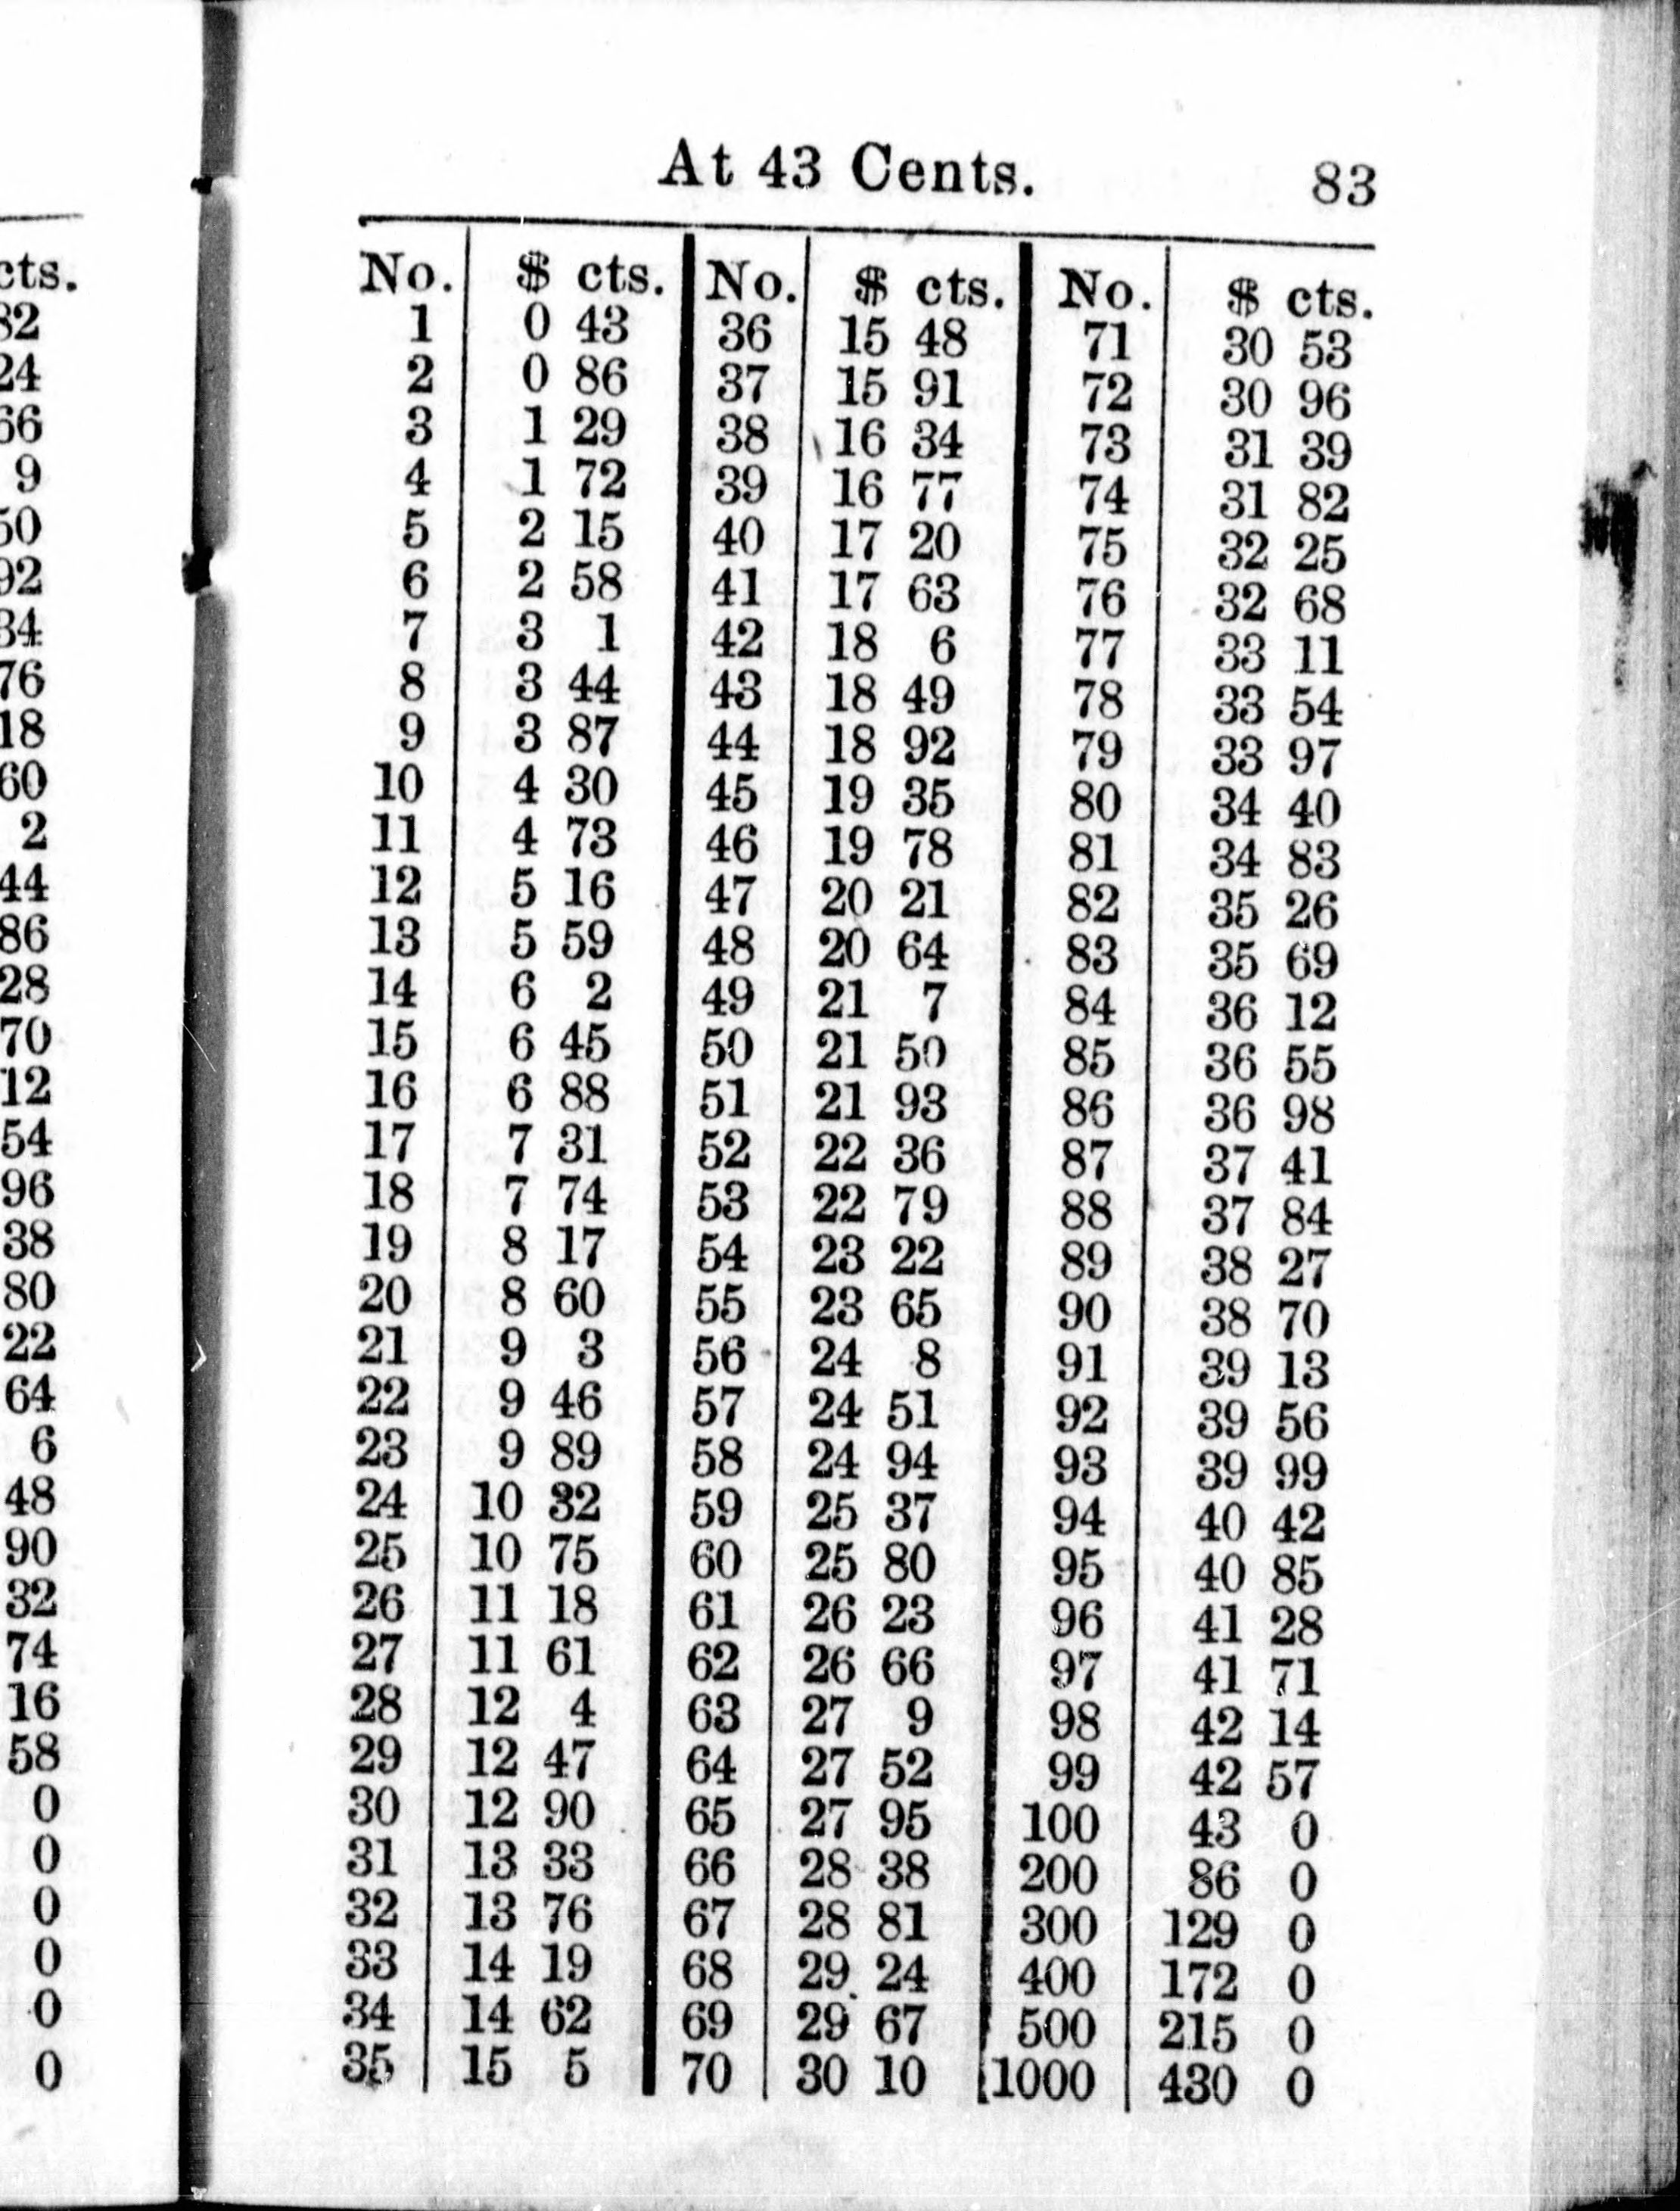 cts.
9
76
18
60
2
44
86
28
70
12
54
96
38
80
22
64
6
48
90
32
74
16
58
0
0
0
0
0
0
At 43 Cents. 83
No. $ cts. No. $ cts. No. $ cts.
1 0 43 36 15 48 71 30 53
2 0 86 37 15 91 72 30 96
3 1 29 38 16 34 73 31 39
4 1 72 39 16 77 74 31 82
5 2 15 40 17 20 75 32 25
6 2 58 41 17 63 76 32 68
7 3 1 42 18 6 77 33 11
8 3 44 43 18 49 78 33 54
9 3 87 44 18 92 79 33 97
10 4 30 45 19 35 80 34 40
11 4 73 46 19 78 81 34 83
12 5 16 47 20 21 82 35 26
13 5 59 48 20 64 83 35 69
14 6 2 49 21 7 84 36 12
15 6 45 50 21 50 85 36 55
16 6 88 51 21 93 86 36 98
17 7 31 52 22 36 87 37 41
18 7 74 53 22 79 88 37 84
19 8 17 54 23 22 89 38 27
20 8 60 55 23 65 90 38 70
21 9 3 56 24 8 91 39 13
22 9 46 57 24 51 92 39 56
23 9 89 58 24 94 93 39 99
24 10 32 59 25 37 94 40 42
25 10 75 60 25 80 95 40 85
26 11 18 61 26 23 96 41 28
27 11 61 62 26 66 97 41 71
28 12 4 63 27 9 98 42 14
29 12 47 64 27 52 99 42 57
30 12 90 65 27 95 100 43 0
31 13 33 66 28 38 200 86 0
32 13 76 67 28 81 300 129 0
33 14 19 68 29 24 400 172 0
34 14 62 69 29 67 500 215 0
35 15 5 70 30 10 1000 430 0